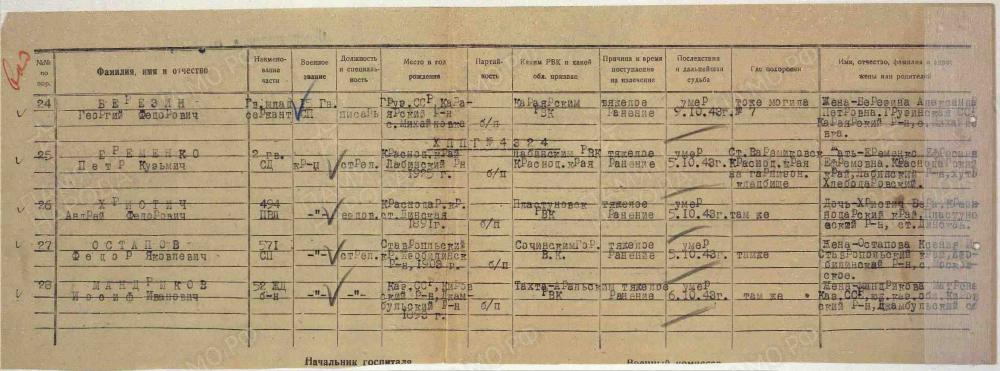 №№ по пор.
Фамилия, имя и отчество
Наимено-
вание
части
Военное
звание
Должность
и специаль-
ность
Место и год
рождения
Партий-
ность
Каким РВК и какой
обл. призван
Причина и время
поступления
на излечение
Последствия
и дальнейшая
судьба
Где похоронен
Имя, отчество, фамилия и адрес
жены или родителей
24
БЕРЕЗИН
Георгий Федорович
Гв. млад
сержант
15 Гв.
СП
писарь
Груз.ССР, Кара-
ярский Р-н
с.Михайловка
б/п
Караярским
РВК
тяжелое
Ранение
умер
9.10.43г.
тоже могила
№ 7
Жена-Березина Александр
Петровна, Грузинская ССР
Караярский Р-н, с. Михайло
вка.
ХППГ № 4324
25
ЕРЕМЕНКО
Петр Кузьмич
2 гв.
СД
кр-ц
стрел.
Краснод.край
Лабинский Рн
1925 г.
б/п
Лабинским РВК
Краснод.края
тяжелое
Ранение
умер
5.10.43г.
Ст.Варениковск
Краснод.края
на гарнизон.
кладбище
Мать-Еременко Ефросиния
Ефремовна, Краснодарский
край, Лабинский Р-н, хут.
Хлебодаровский.
26
ХРИОТИЧ
Андрай Федорович
494
ПВП
-"-
ездов.
Краснода.кр.
ст.Динская
1891г.
б/п
Пластуновск
РВК
тяжелое
Ранение
умер
5.10.43г.
там же
Дочь-Хриотич Вера, Красн
нодарский край, Пластуно
вский Р-н, ст.Динская.
27
ОСТАПОВ
Федор Яковлевич
571
СП
-"-
стрел.
Ставропольский
кр.
Р-н, 1903 г.
б/п
Сочинским Гор.
В.К.
тяжелое
Ранение
умер
5.10.43г.
тамже
Жена-Остапова Ксения
Ставропольский край,
билинский Р-н, с.Москов-
ское.
28
МАНДРИКОВ
Иосиф Иванович
52 ЖД
б-н
-"-
-"-
Каз.ССР, Киров
ский Р-н, Джам-
бульский Р-н
1893 г.
б/п
Тахта-Аральским
РВК
тяжелое
Ранение
умер
6.10.43г.
там же
Жена-Мандрикова Матрона
Каз.ССР, юж.каз.обл. Киров
ский Р-н, Джамбульский с
Начальник госпиталя
Военный комиссар